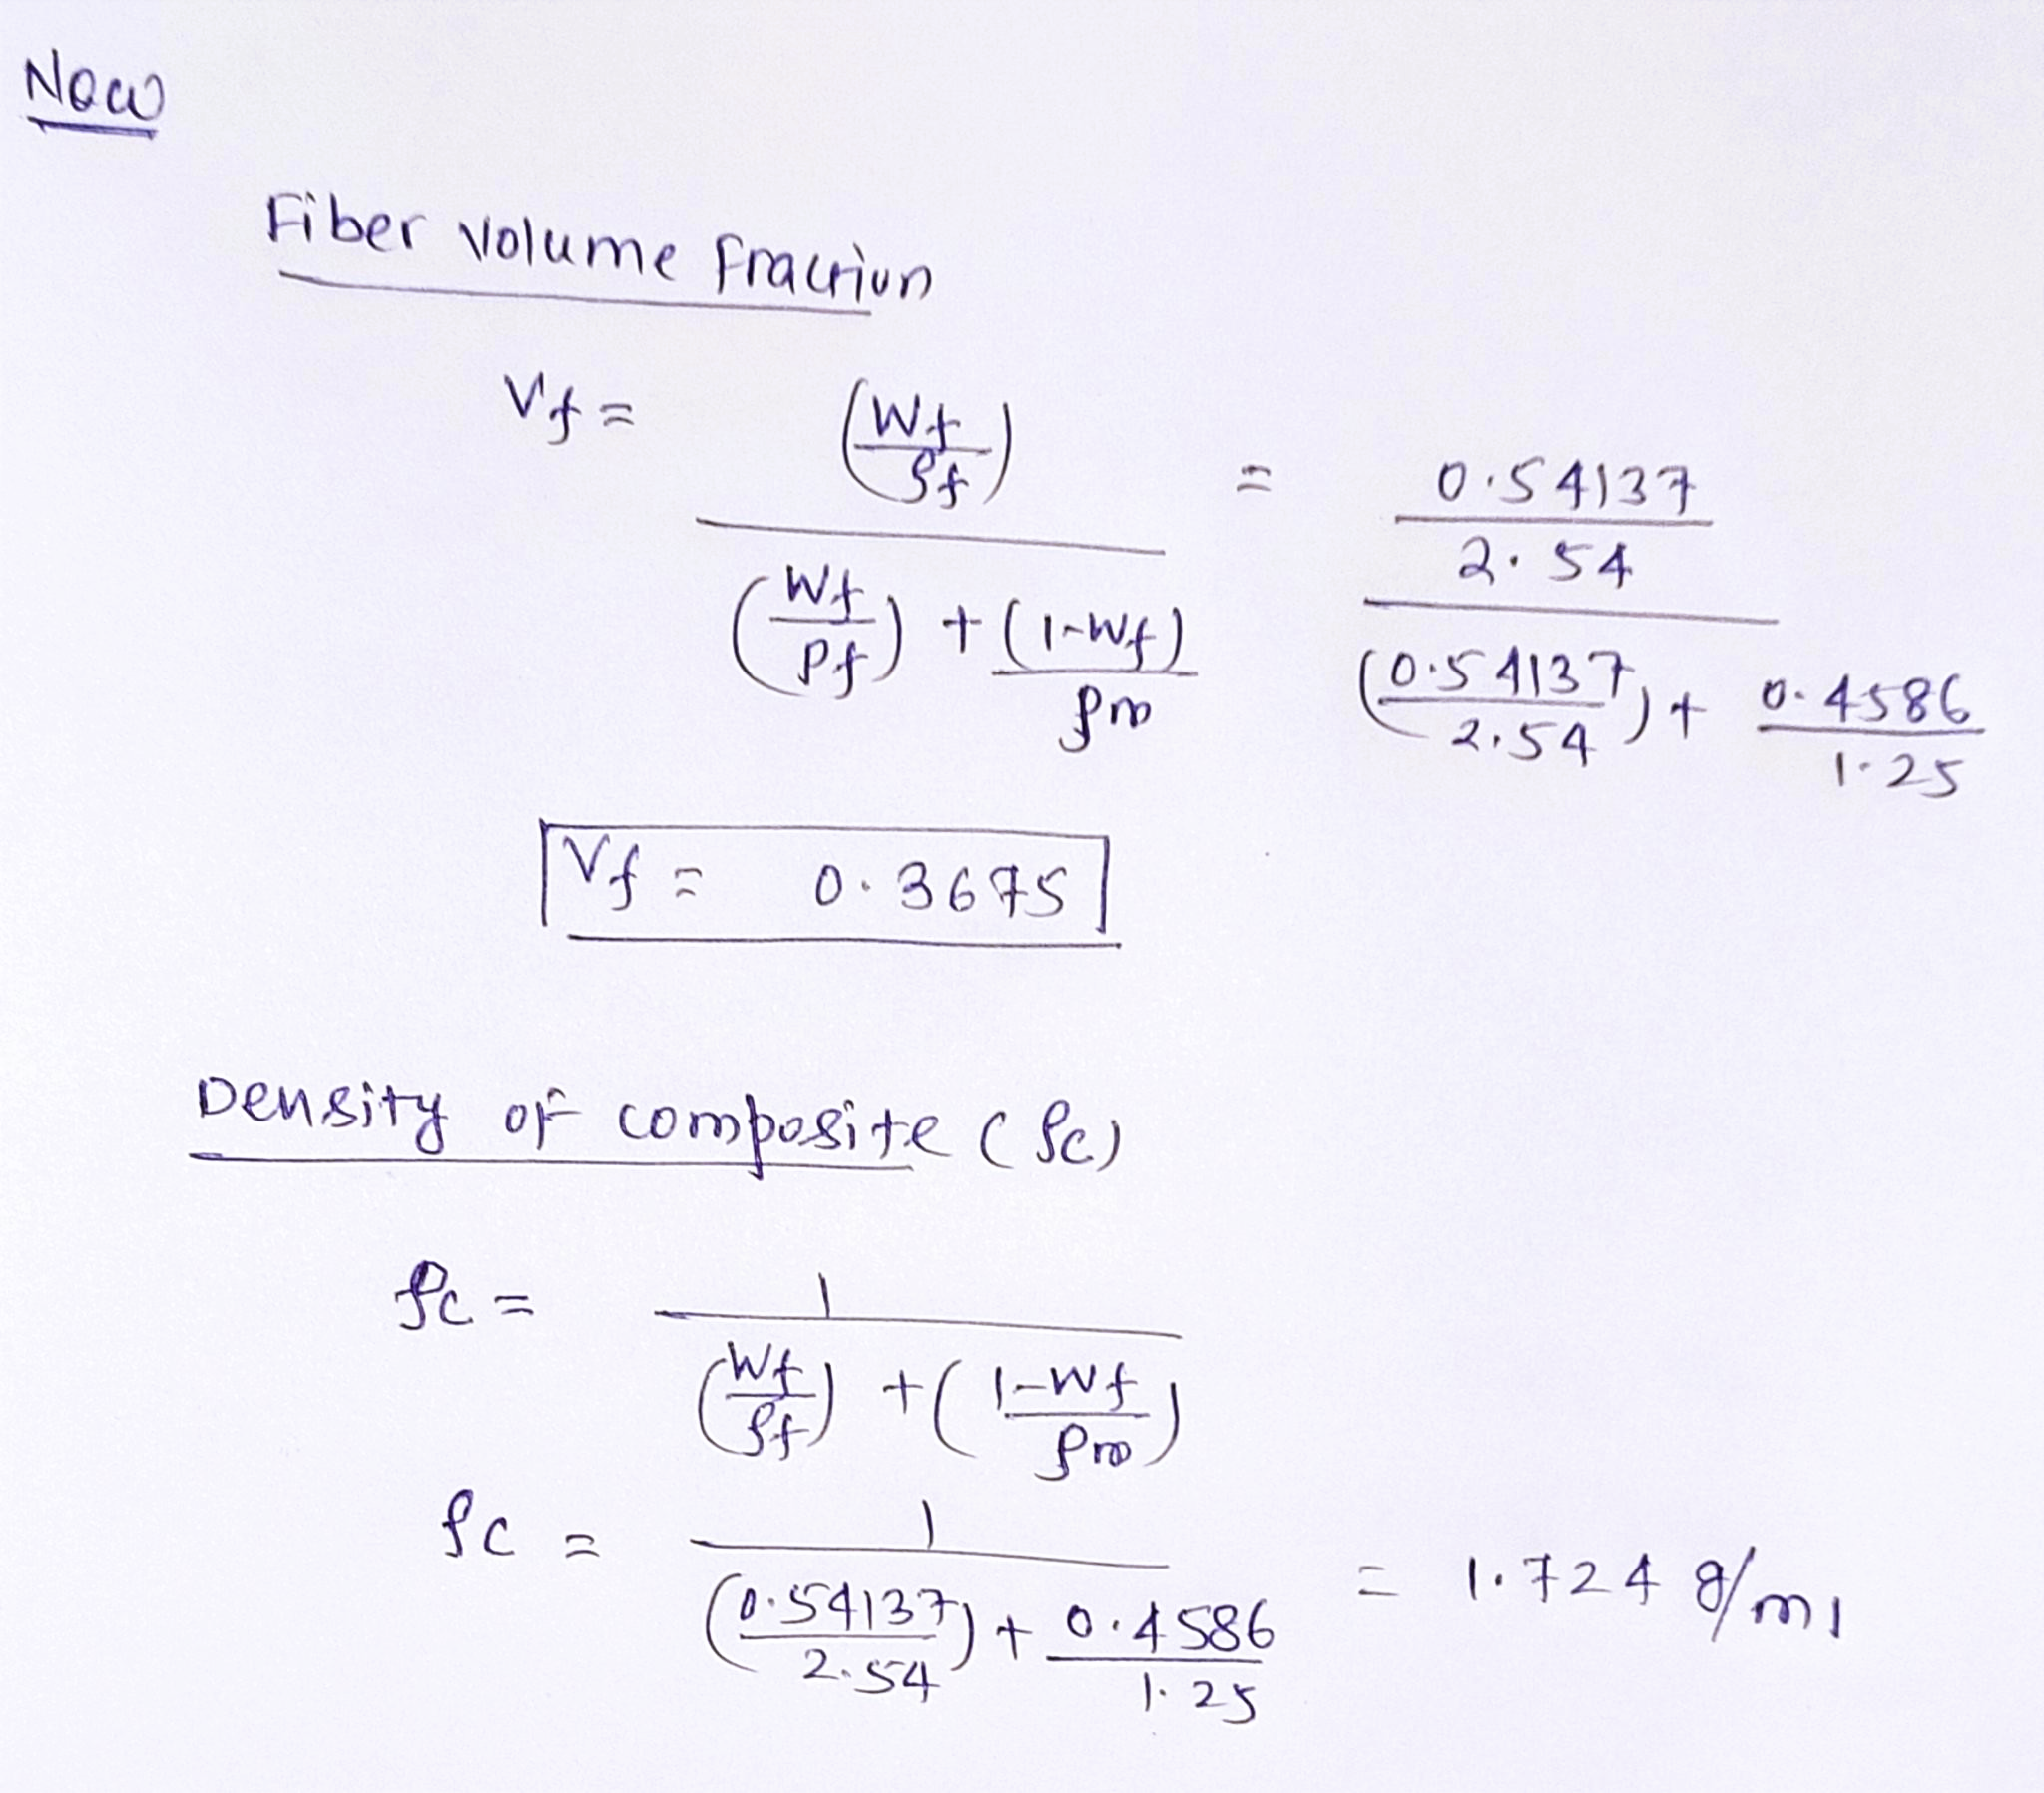 Now
Fiber Volume Fraction
Vf = (Wf/ρf) / ((Wf/ρf) + (1-Wf)/ρm) = (0.54137/2.54) / ((0.54137/2.54) + 0.4586/1.25)
Vf = 0.3675
Density of composite (ρc)
ρc = 1 / ((Wf/ρf) + (1-Wf/ρm))
ρc = 1 / ((0.54137/2.54) + 0.4586/1.25) = 1.724 g/ml